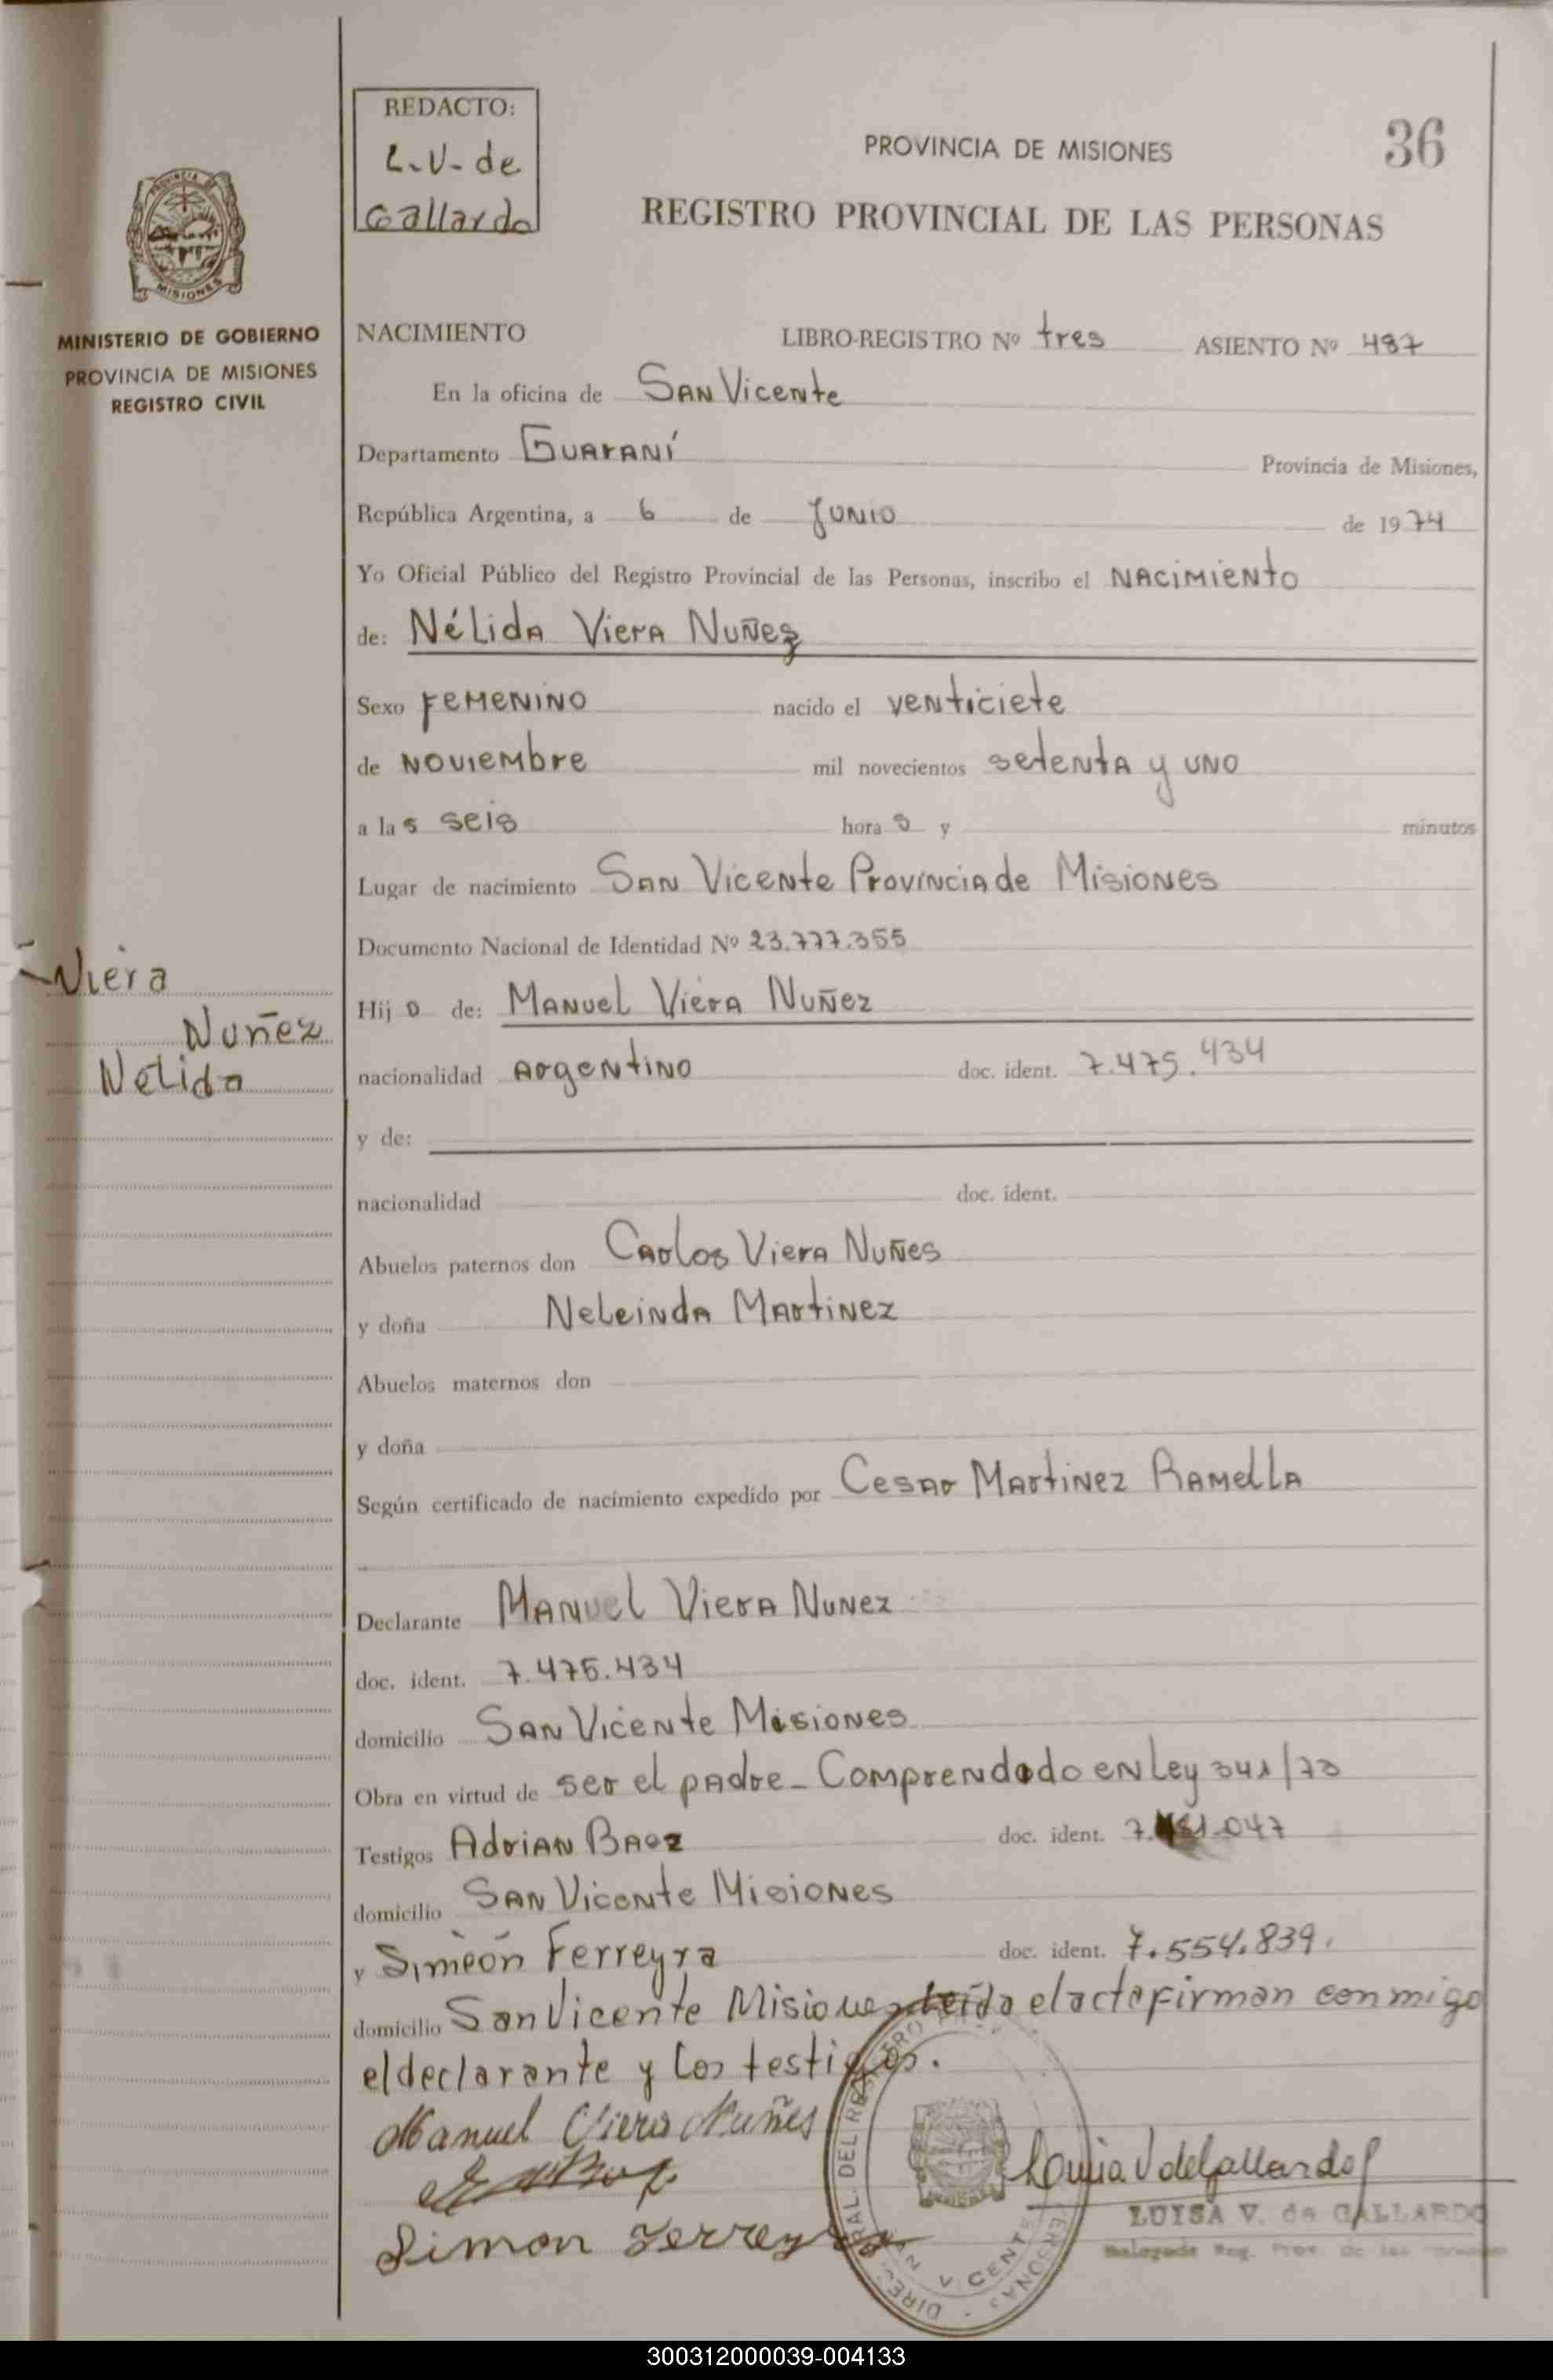 REDACTO:
L.V. de
Gallardo
PROVINCIA DE MISIONES
36
REGISTRO PROVINCIAL DE LAS PERSONAS
MISIONES
MINISTERIO DE GOBIERNO
PROVINCIA DE MISIONES
REGISTRO CIVIL
NACIMIENTO LIBRO-REGISTRO Nº tres ASIENTO Nº 487
En la oficina de San Vicente
Departamento Guaraní Provincia de Misiones,
República Argentina, a 6 de Junio de 1974
Yo Oficial Público del Registro Provincial de las Personas, inscribo el Nacimiento
de: Nélida Viera Nuñez
Sexo Femenino nacido el venticiete
de Noviembre mil novecientos setenta y uno
a las seis horas y minutos
Lugar de nacimiento San Vicente Provincia de Misiones
Documento Nacional de Identidad Nº 23.777.355
Viera
Nuñez
Nélida
Hija de: Manuel Viera Nuñez
nacionalidad Argentino doc. ident. 7.475.434
y de:
nacionalidad doc. ident.
Abuelos paternos don Carlos Viera Nuñes
y doña Neleinda Martinez
Abuelos maternos don
y doña
Según certificado de nacimiento expedido por Cesar Martinez Ramella
Declarante Manuel Viera Nunez
doc. ident. 7.475.434
domicilio San Vicente Misiones
Obra en virtud de ser el padre - Comprendado en Ley 341/73
Testigos Adrian Baez doc. ident.
domicilio San Vicente Misiones
y Simeón Ferreyra doc. ident. 7.554.839.
domicilio San Vicente Misiones leída el acta firman conmigo
el declarante y los testigos.
Manuel Viera Nuñes
Simon Ferreyra
Luisa V de Gallardo
LUISA V. de GALLARDO
300312000039-004133